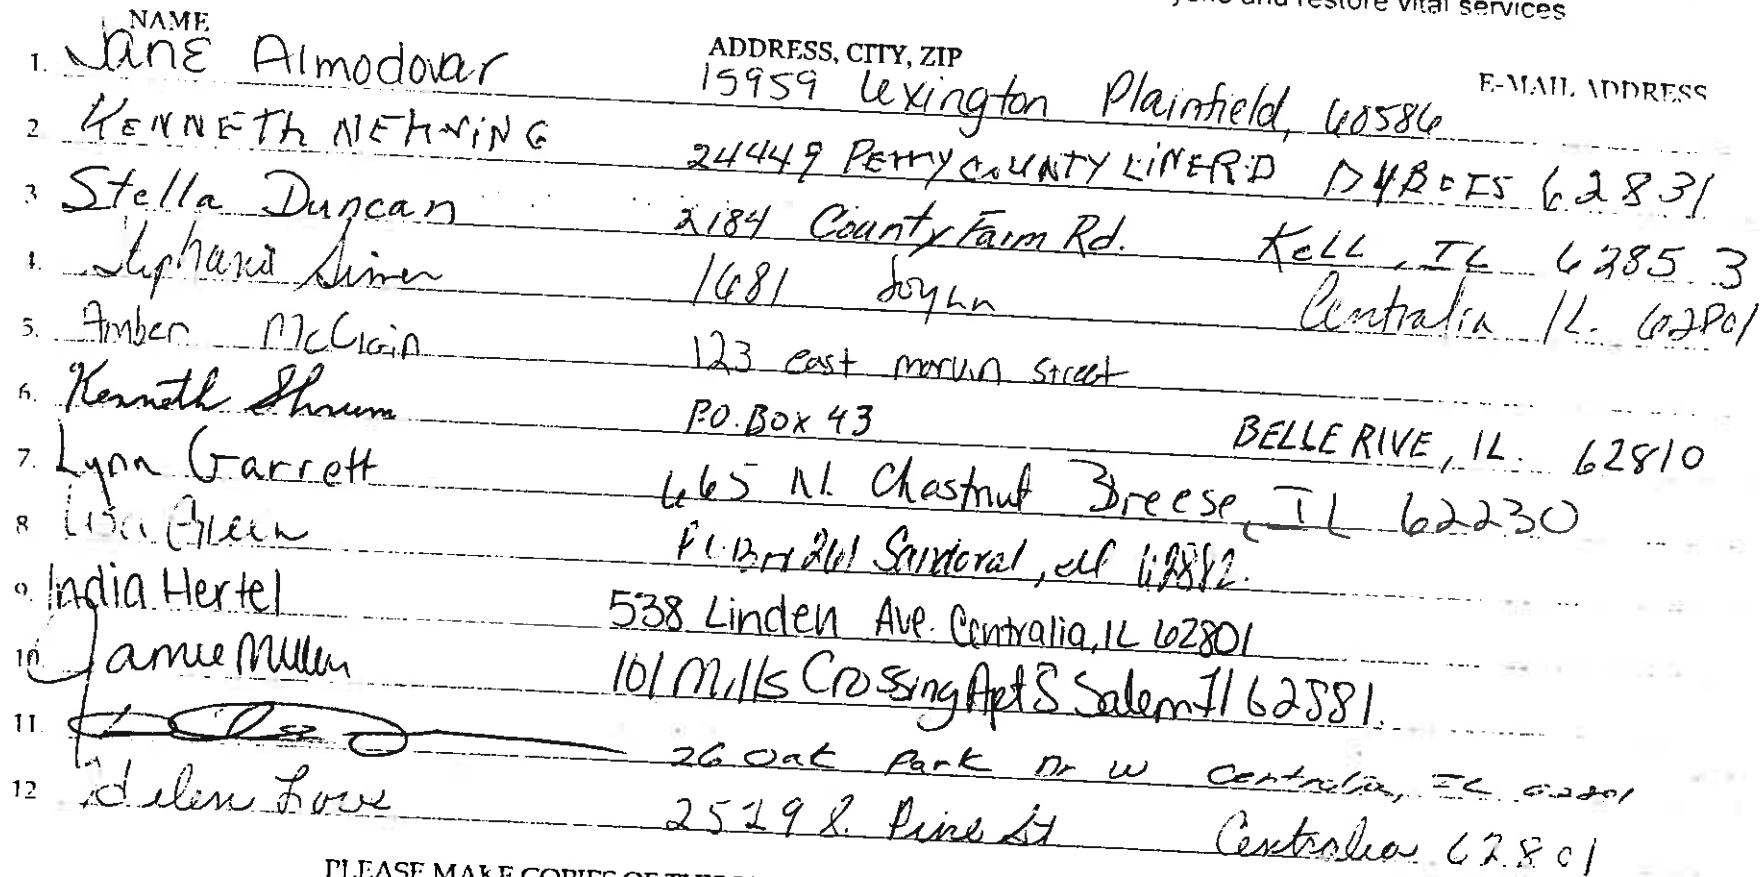 and restore vital services
NAME
ADDRESS, CITY, ZIP
E-MAIL ADDRESS
1. Jane Almodovar 15959 Lexington Plainfield, 60586
2 KENNETH NEHRING 24449 PERRY COUNTY LINE RD DUBOIS 62831
3. Stella Duncan 2184 County Farm Rd. Kell, IL 62853
4. Stephanie Simer 1681 Joyln Centralia IL. 62801
5. Amber McClain 123 east marvin street
6. Kenneth Shrum P.O. Box 43 BELLE RIVE, IL. 62810
7. Lynn Garrett 665 N. Chestnut Breese, IL 62230
8 Lisa Green P.O. Box 261 Sandoval, Ill 62882.
9. India Hertel 538 Linden Ave. Centralia, IL 62801
10. Jamie Mullen 101 Mills Crossing Apt S Salem Il 62881.
11. 26 Oak Park Dr W Centralia, IL 62801
12 Helen Love 2529 S. Pine St Centralia 62801
PLEASE MAKE COPIES OF